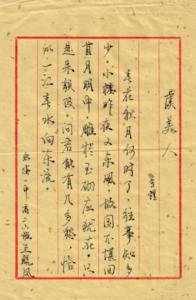 虞美人
李煜
春花秋月何时了，往事知多
少。小楼昨夜又东风，故国不堪回
首月明中。雕栏玉砌应犹在，只
是朱颜改。问君能有几多愁，恰
似一江春水向东流。